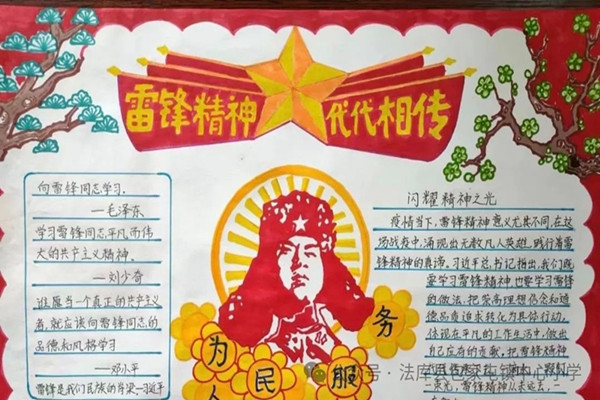 雷锋精神 代代相传
向雷锋同志学习。
——毛泽东
学习雷锋同志平凡而伟
大的共产主义精神。
——刘少奇
谁愿当一个真正的共产主义
者,就应该向雷锋同志的
品德和风格学习
——邓小平
雷锋是我们民族的脊梁—习近平
为人民服务
闪耀精神之光
疫情当下,雷锋精神意义尤其不同,在这
场战疫中,涌现出无数凡人英雄,践行着雷
锋精神的真谛。习近平总书记指出,我们既
要学习雷锋精神,也要学习雷锋
的做法,把崇高理想信念和道
德品质追求转化为具体行动,
体现在平凡的工作生活中,做出
自己应有的贡献,把雷锋精神
荣光,雷锋精神从未远去。
号·法库县
中心小学